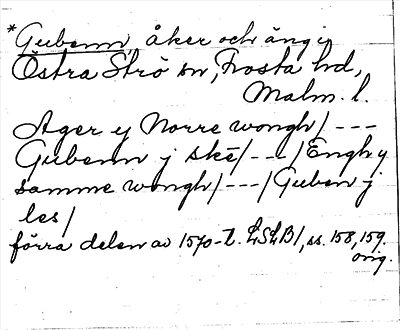 *Gubenn, åker och äng i
Östra Strö sn, Frosta hd,
Malm. l.
Ager y Norre wongh/ - - -
Gubenn j skè/ - - -/Engh y
samme wongh/ - - -/Guben j
les/
förra delen av 1570-t. LSLB/, ss. 158, 159.
orig.